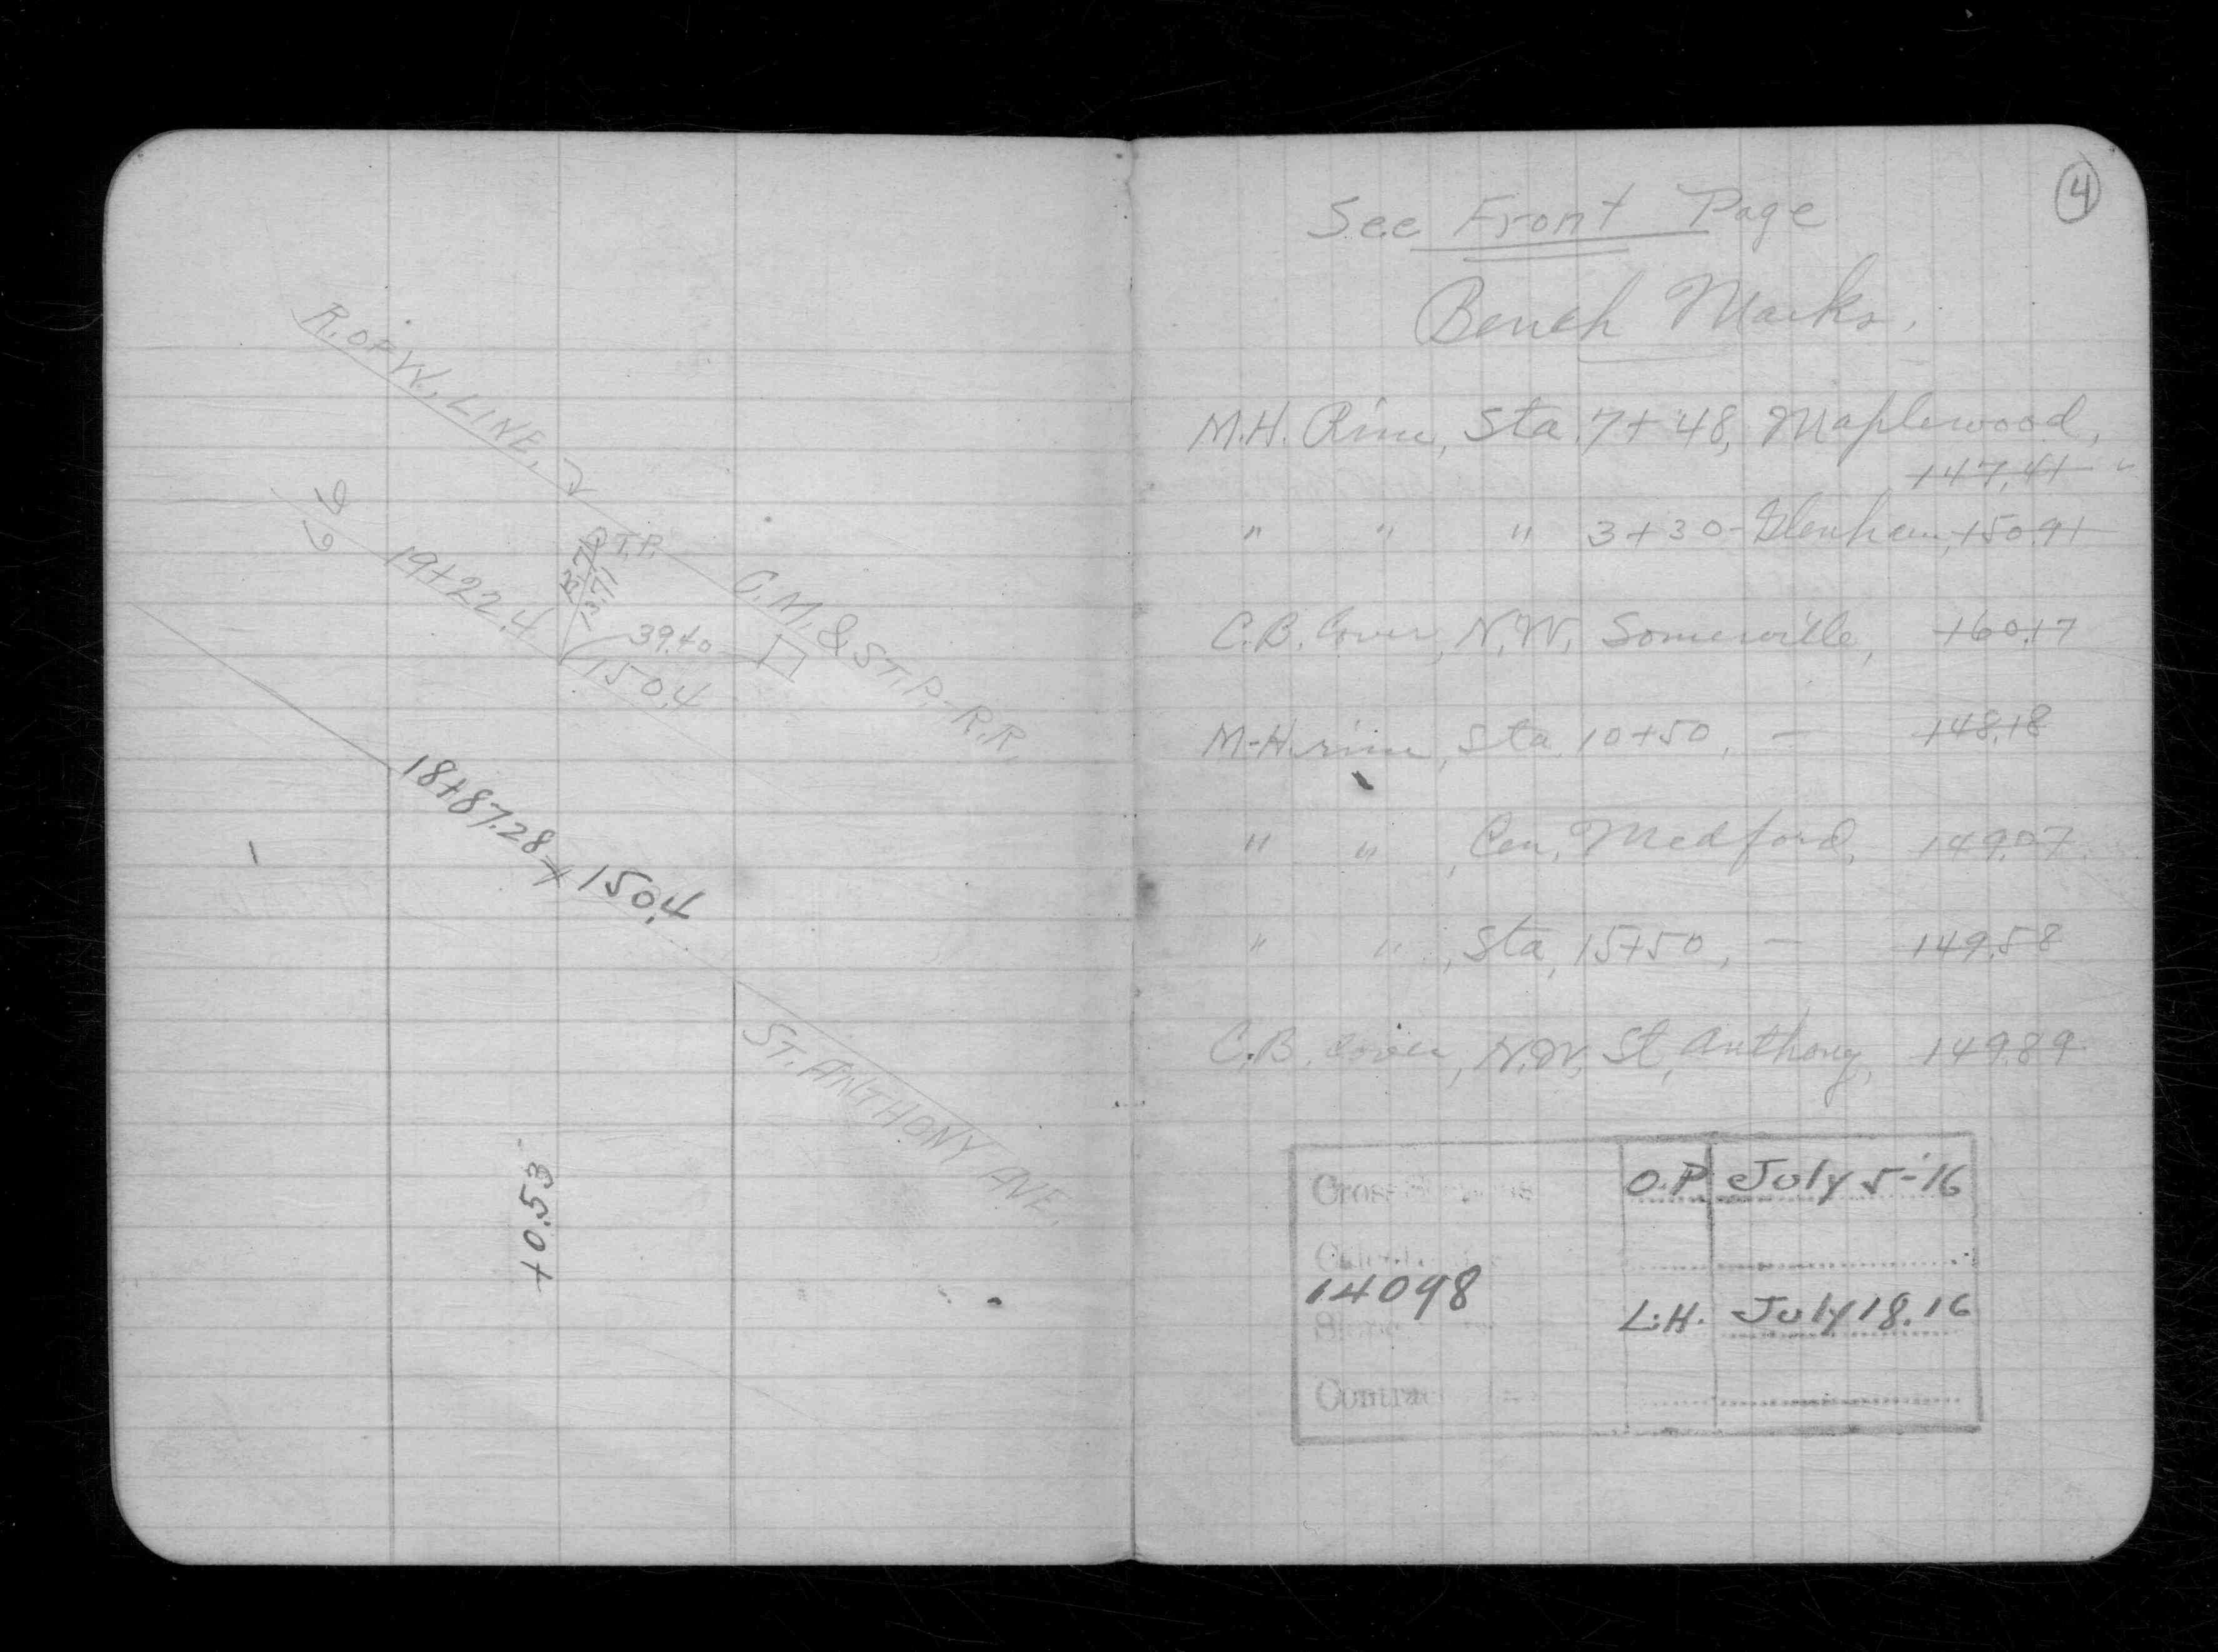 R. OF W. LINE.
66
19+22.4
T.P.
13.71
39.40
150.4
C. M. & ST. P. R.R.
18+87.28
150.4
ST. ANTHONY AVE.
+0.53
4
See Front Page
Bench Marks.
M.H. Rim, Sta. 7+48, Maplewood,
147.41 "
" " " 3+30 - Glenham, 150.91
C.B. Cover, N.W. Somerville, 160.17
M.H. rim, Sta. 10+50, — 148.18
" " , Cen. Medford, 149.07
" " , Sta, 15+50, — 149.58
C.B. Cover, N.W. St. Anthony, 149.89
Cross O.P. July 5-16
14098
L.H. July 18.16